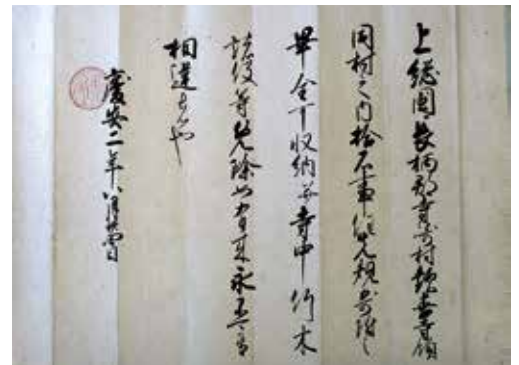 上総國長柄郡村寺領
同村之内拾石事任先規寄附之
畢全可収納并寺中竹木
諸役等免除如有来永不可有
相違者也
慶安二年八月廿四日